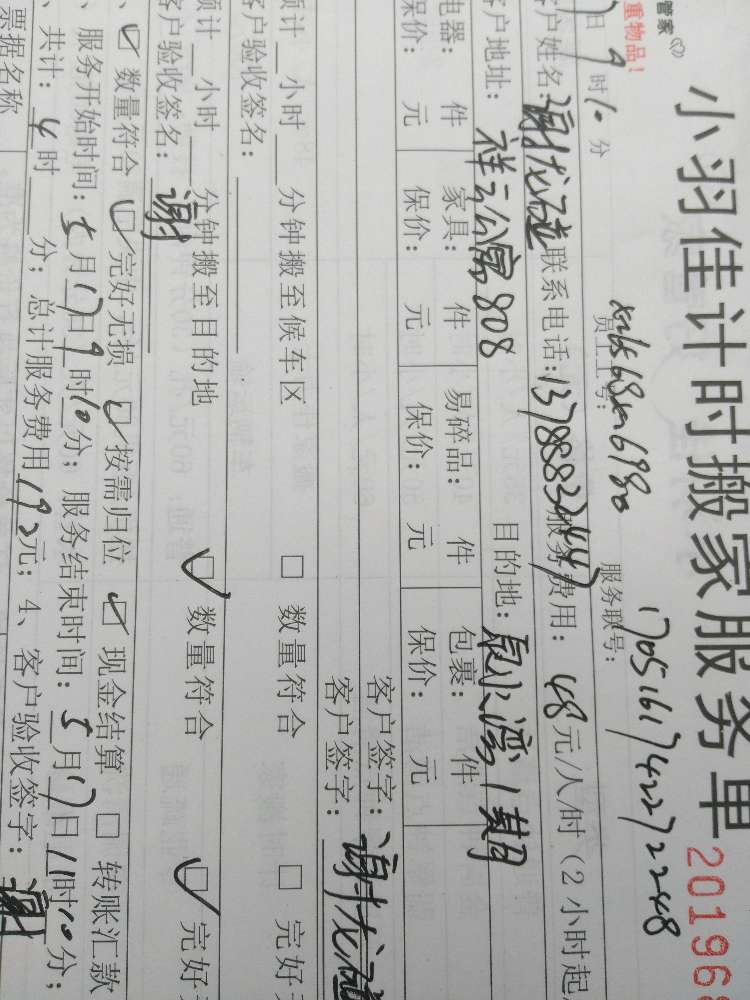 管家
重物品！
小羽佳计时搬家服务单 201969
员工工号： 服务联号： 17051617422722248
日 9 时 10 分
客户姓名：谢龙 联系电话： 服务费用：48元/人/时（2小时起
客户地址：祥云公寓808 目的地：泉水湾1期
电器： 件 家具： 件 易碎品： 件 包裹： 件
保价： 元 保价： 元 保价： 元 保价： 元
客户签字：
客户签字：谢龙
预计 小时 分钟搬至候车区 □ 数量符合 □ 完好
客户验收签名：
预计 小时 分钟搬至目的地 ☑ 数量符合 ☑ 完好
客户验收签名：谢
☑ 数量符合 ☑ 完好无损 ☑ 按需归位 ☑ 现金结算 □ 转账汇款
、服务开始时间：5月17日9时10分；服务结束时间：5月17日11时10分；
、共计：4时 分；总计服务费用192元；4、客户验收签字：谢
票据名称